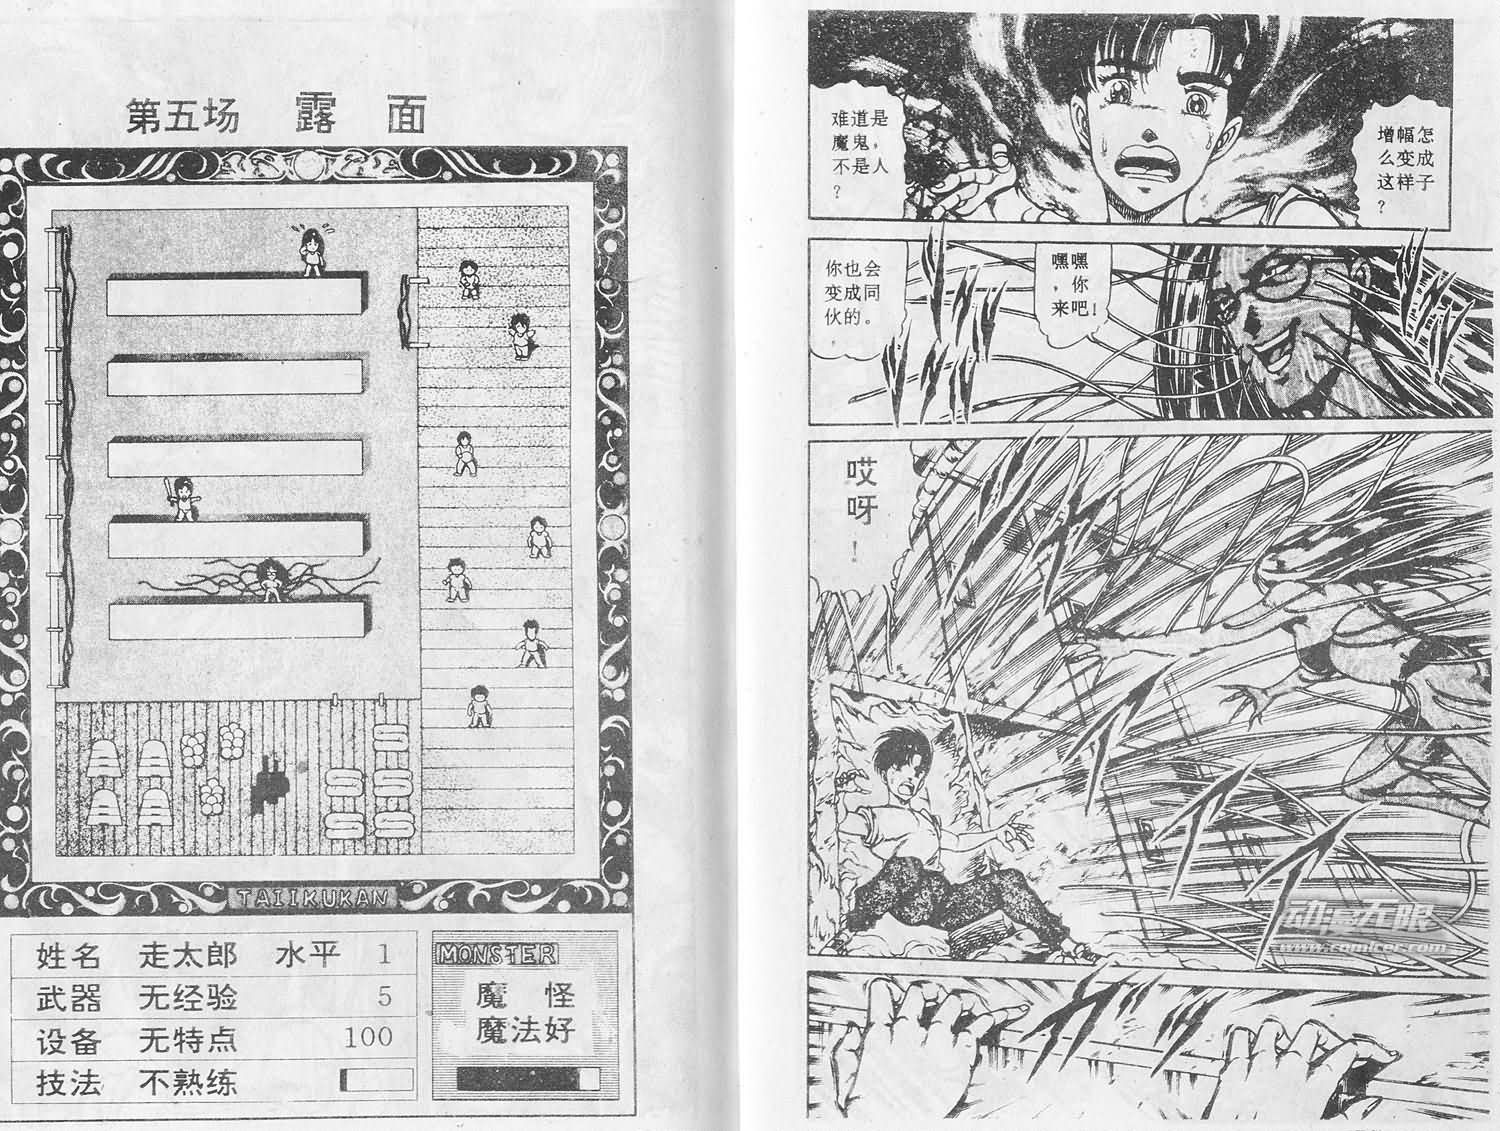 第五场 露 面
TAIIKUKAN
姓名 走太郎 水平 1
武器 无经验 5
设备 无特点 100
技法 不熟练
MONSTER
魔 怪
魔法好
增幅怎
么变成
这样子
?
难道是
魔鬼，
不是人
?
嘿嘿
，你
来吧!
你也会
变成同
伙的。
哎
呀
!
动漫无限
www.comicer.com